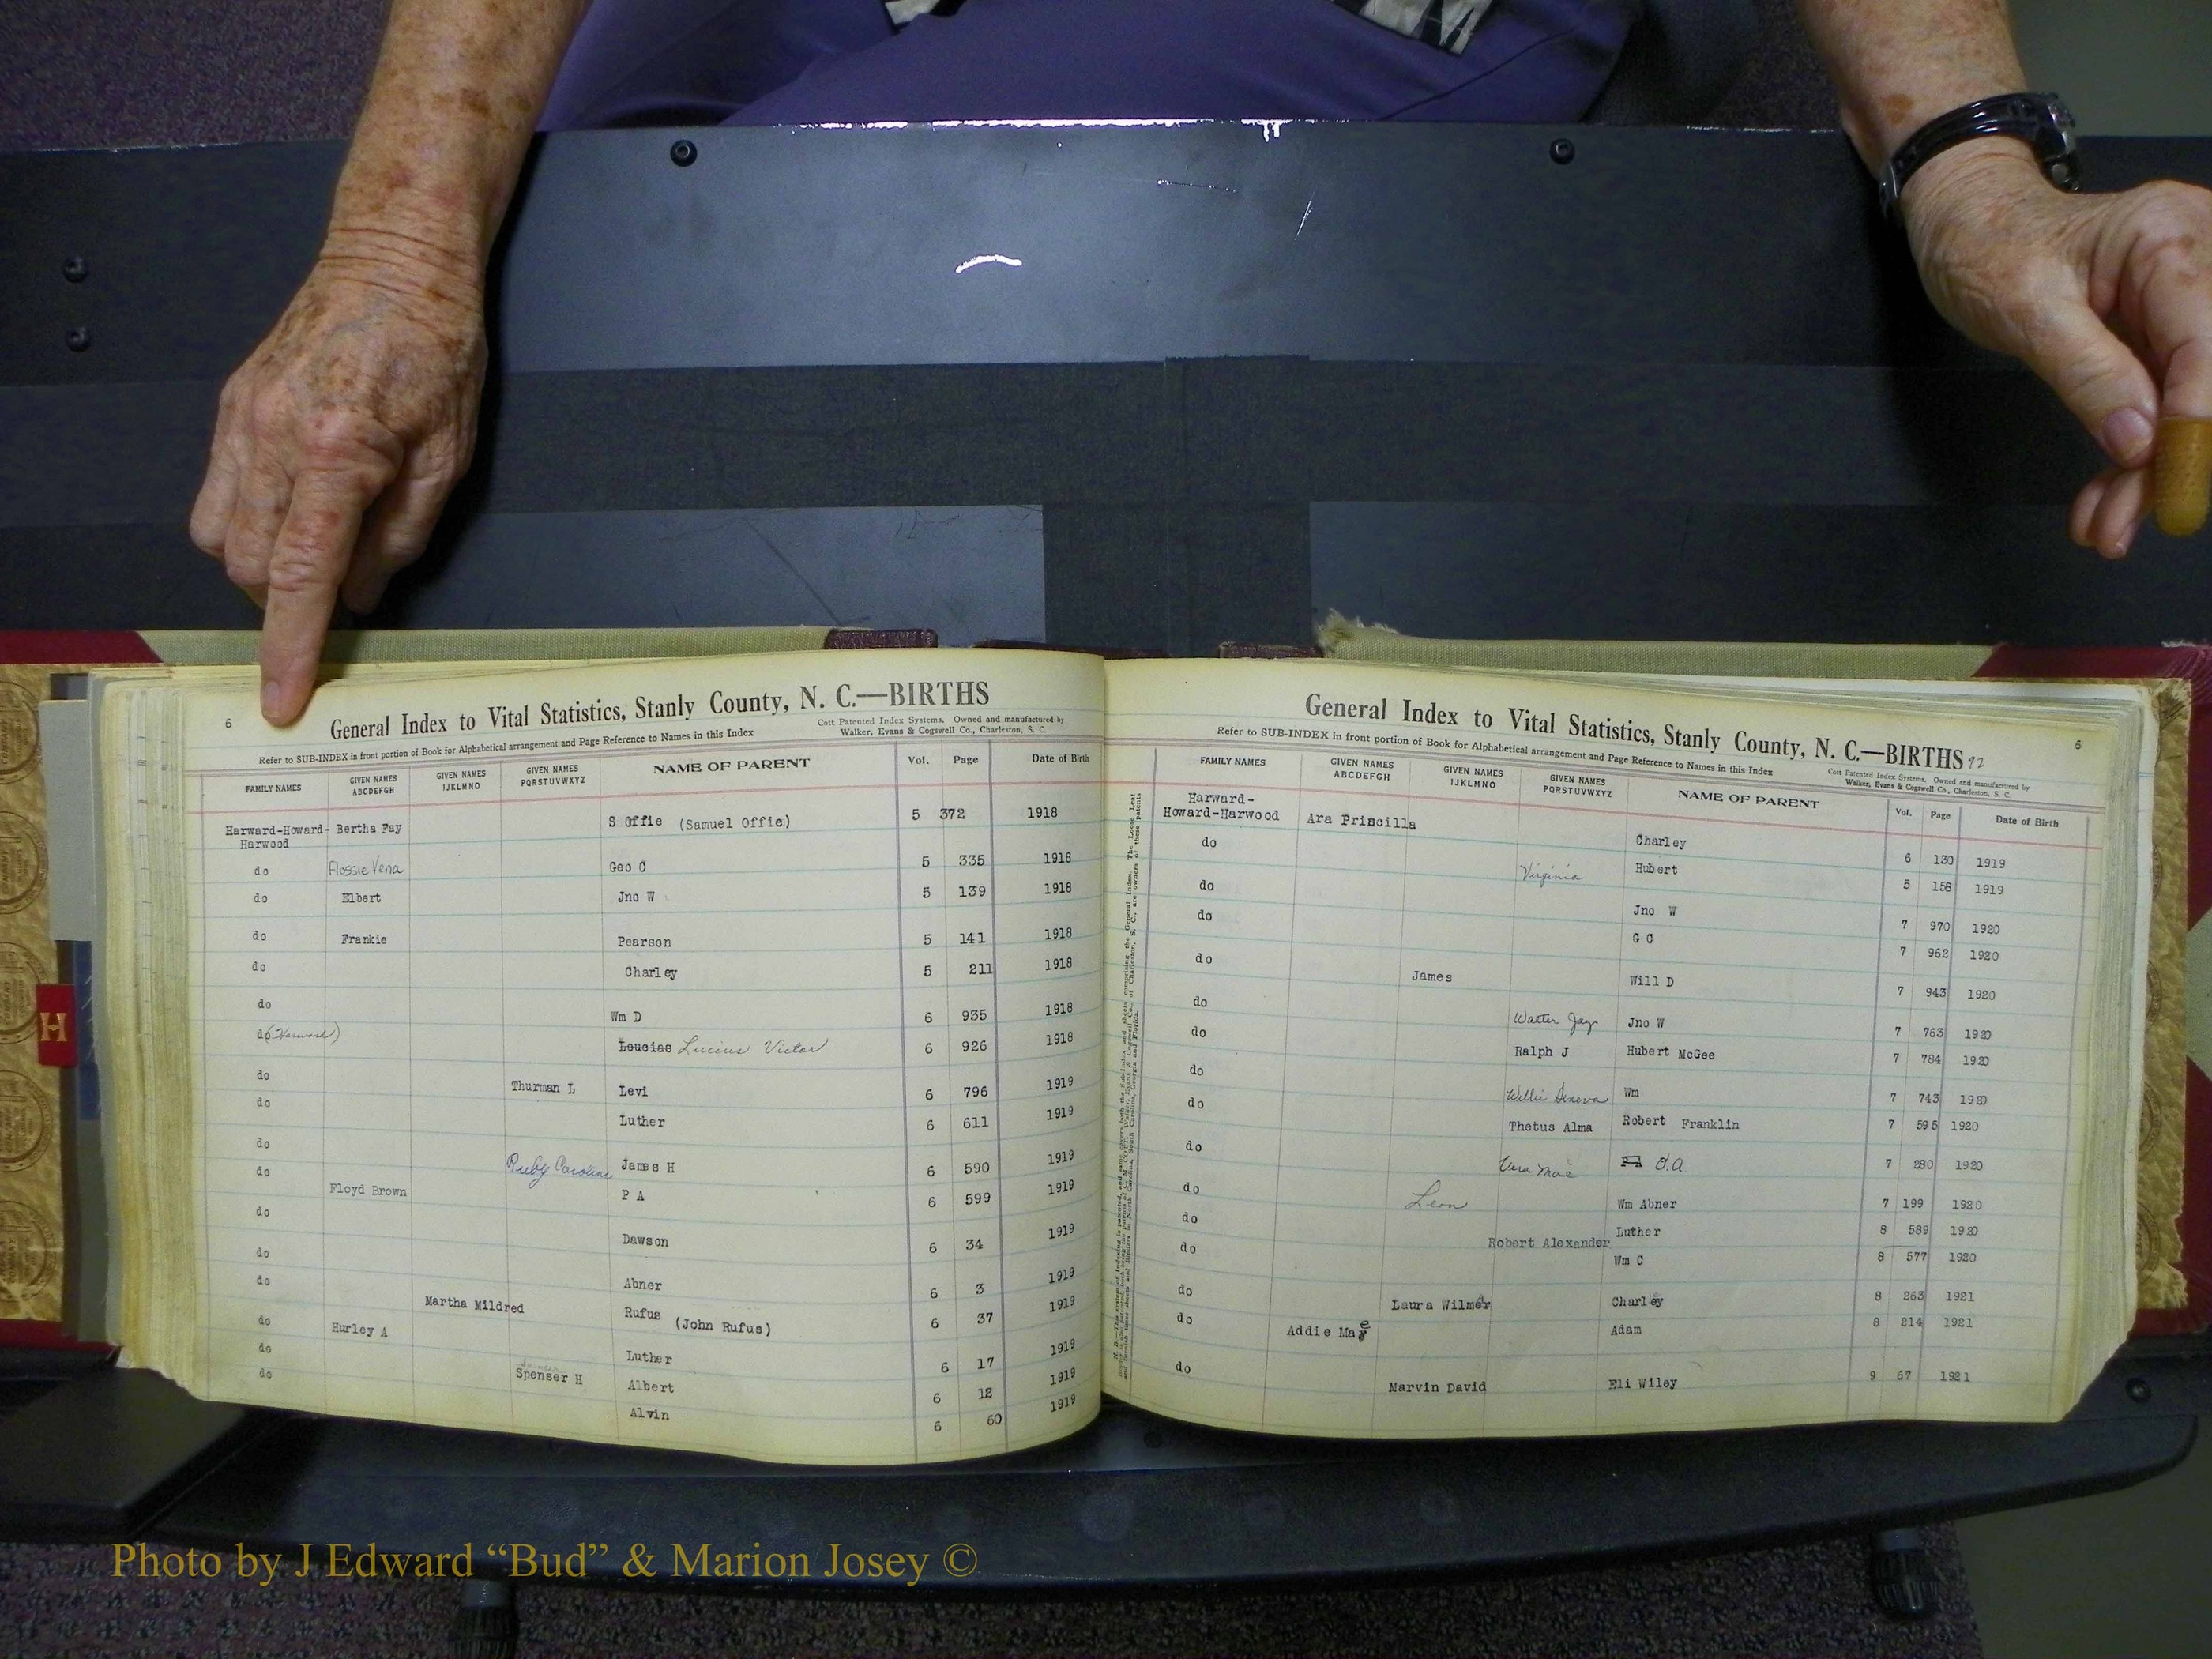 6
General Index to Vital Statistics, Stanly County, N. C.—BIRTHS
Refer to SUB-INDEX in front portion of Book for Alphabetical arrangement and Page Reference to Names in this Index
Cott Patented Index Systems, Owned and manufactured by
Walker, Evans & Cogswell Co., Charleston, S. C.
FAMILY NAMES GIVEN NAMES ABCDEFGH GIVEN NAMES IJKLMNO GIVEN NAMES PQRSTUVWXYZ NAME OF PARENT Vol. Page Date of Birth
Harward-Howard-Harwood Bertha Fay S Offie (Samuel Offie) 5 372 1918
do Flossie Vena Geo C 5 335 1918
do Elbert Jno W 5 139 1918
do Frankie Pearson 5 141 1918
do Charley 5 211 1918
do Wm D 6 935 1918
do (Harward) Loucias Lucius Victor 6 926 1918
do Thurman L Levi 6 796 1919
do Luther 6 611 1919
do Ruby Caroline James H 6 590 1919
do Floyd Brown P A 6 599 1919
do Dawson 6 34 1919
do Abner 6 3 1919
do Martha Mildred Rufus (John Rufus) 6 37 1919
do Hurley A Luther 6 17 1919
do Spenser H Albert 6 12 1919
do Alvin 6 60 1919
General Index to Vital Statistics, Stanly County, N. C.—BIRTHS 92
6
Refer to SUB-INDEX in front portion of Book for Alphabetical arrangement and Page Reference to Names in this Index
Cott Patented Index Systems, Owned and manufactured by
Walker, Evans & Cogswell Co., Charleston, S. C.
FAMILY NAMES GIVEN NAMES ABCDEFGH GIVEN NAMES IJKLMNO GIVEN NAMES PQRSTUVWXYZ NAME OF PARENT Vol. Page Date of Birth
Harward-Howard-Harwood Ara Priscilla Charley 6 130 1919
do Virginia Hubert 5 158 1919
do Jno W 7 970 1920
do G C 7 962 1920
do James Will D 7 943 1920
do Walter Jay Jno W 7 763 1920
do Ralph J Hubert McGee 7 784 1920
do Willie Wm 7 743 1920
do Thetus Alma Robert Franklin 7 595 1920
do Vera Mae O.A 7 280 1920
do Leon Wm Abner 7 199 1920
do Robert Alexander Luther 8 589 1920
do Wm C 8 577 1920
do Laura Wilmer Charley 8 263 1921
do Addie Mae Adam 8 214 1921
do Marvin David Eli Wiley 9 67 1921
H
Photo by J Edward “Bud” & Marion Josey ©